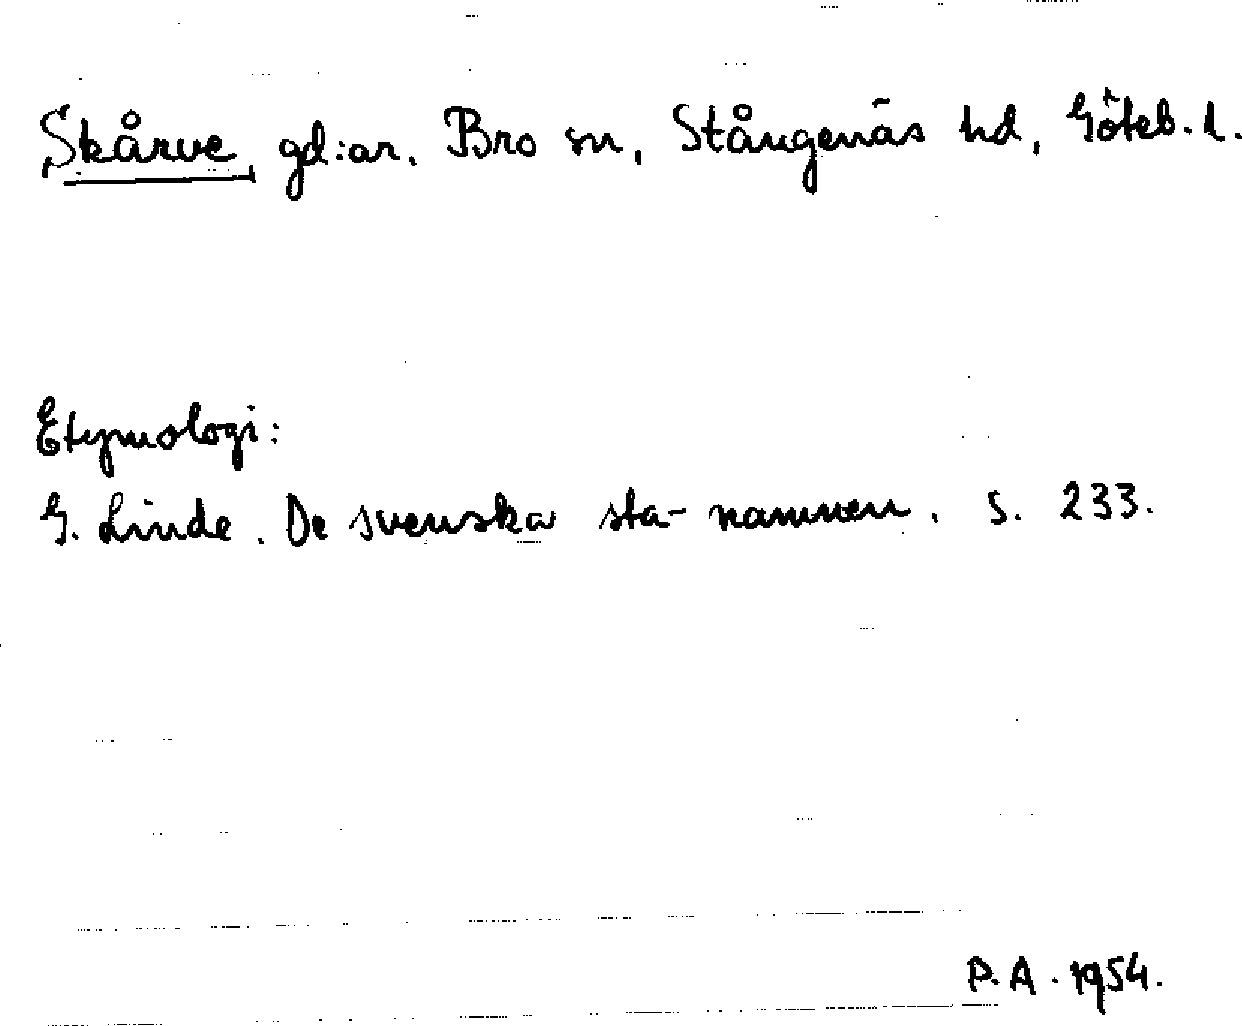 Skårve, gd:ar. Bro sn, Stångenäs hd, Göteb. l.
Etymologi:
G. Linde. De svenska sta-namnen. S. 233.
P. A. 1954.